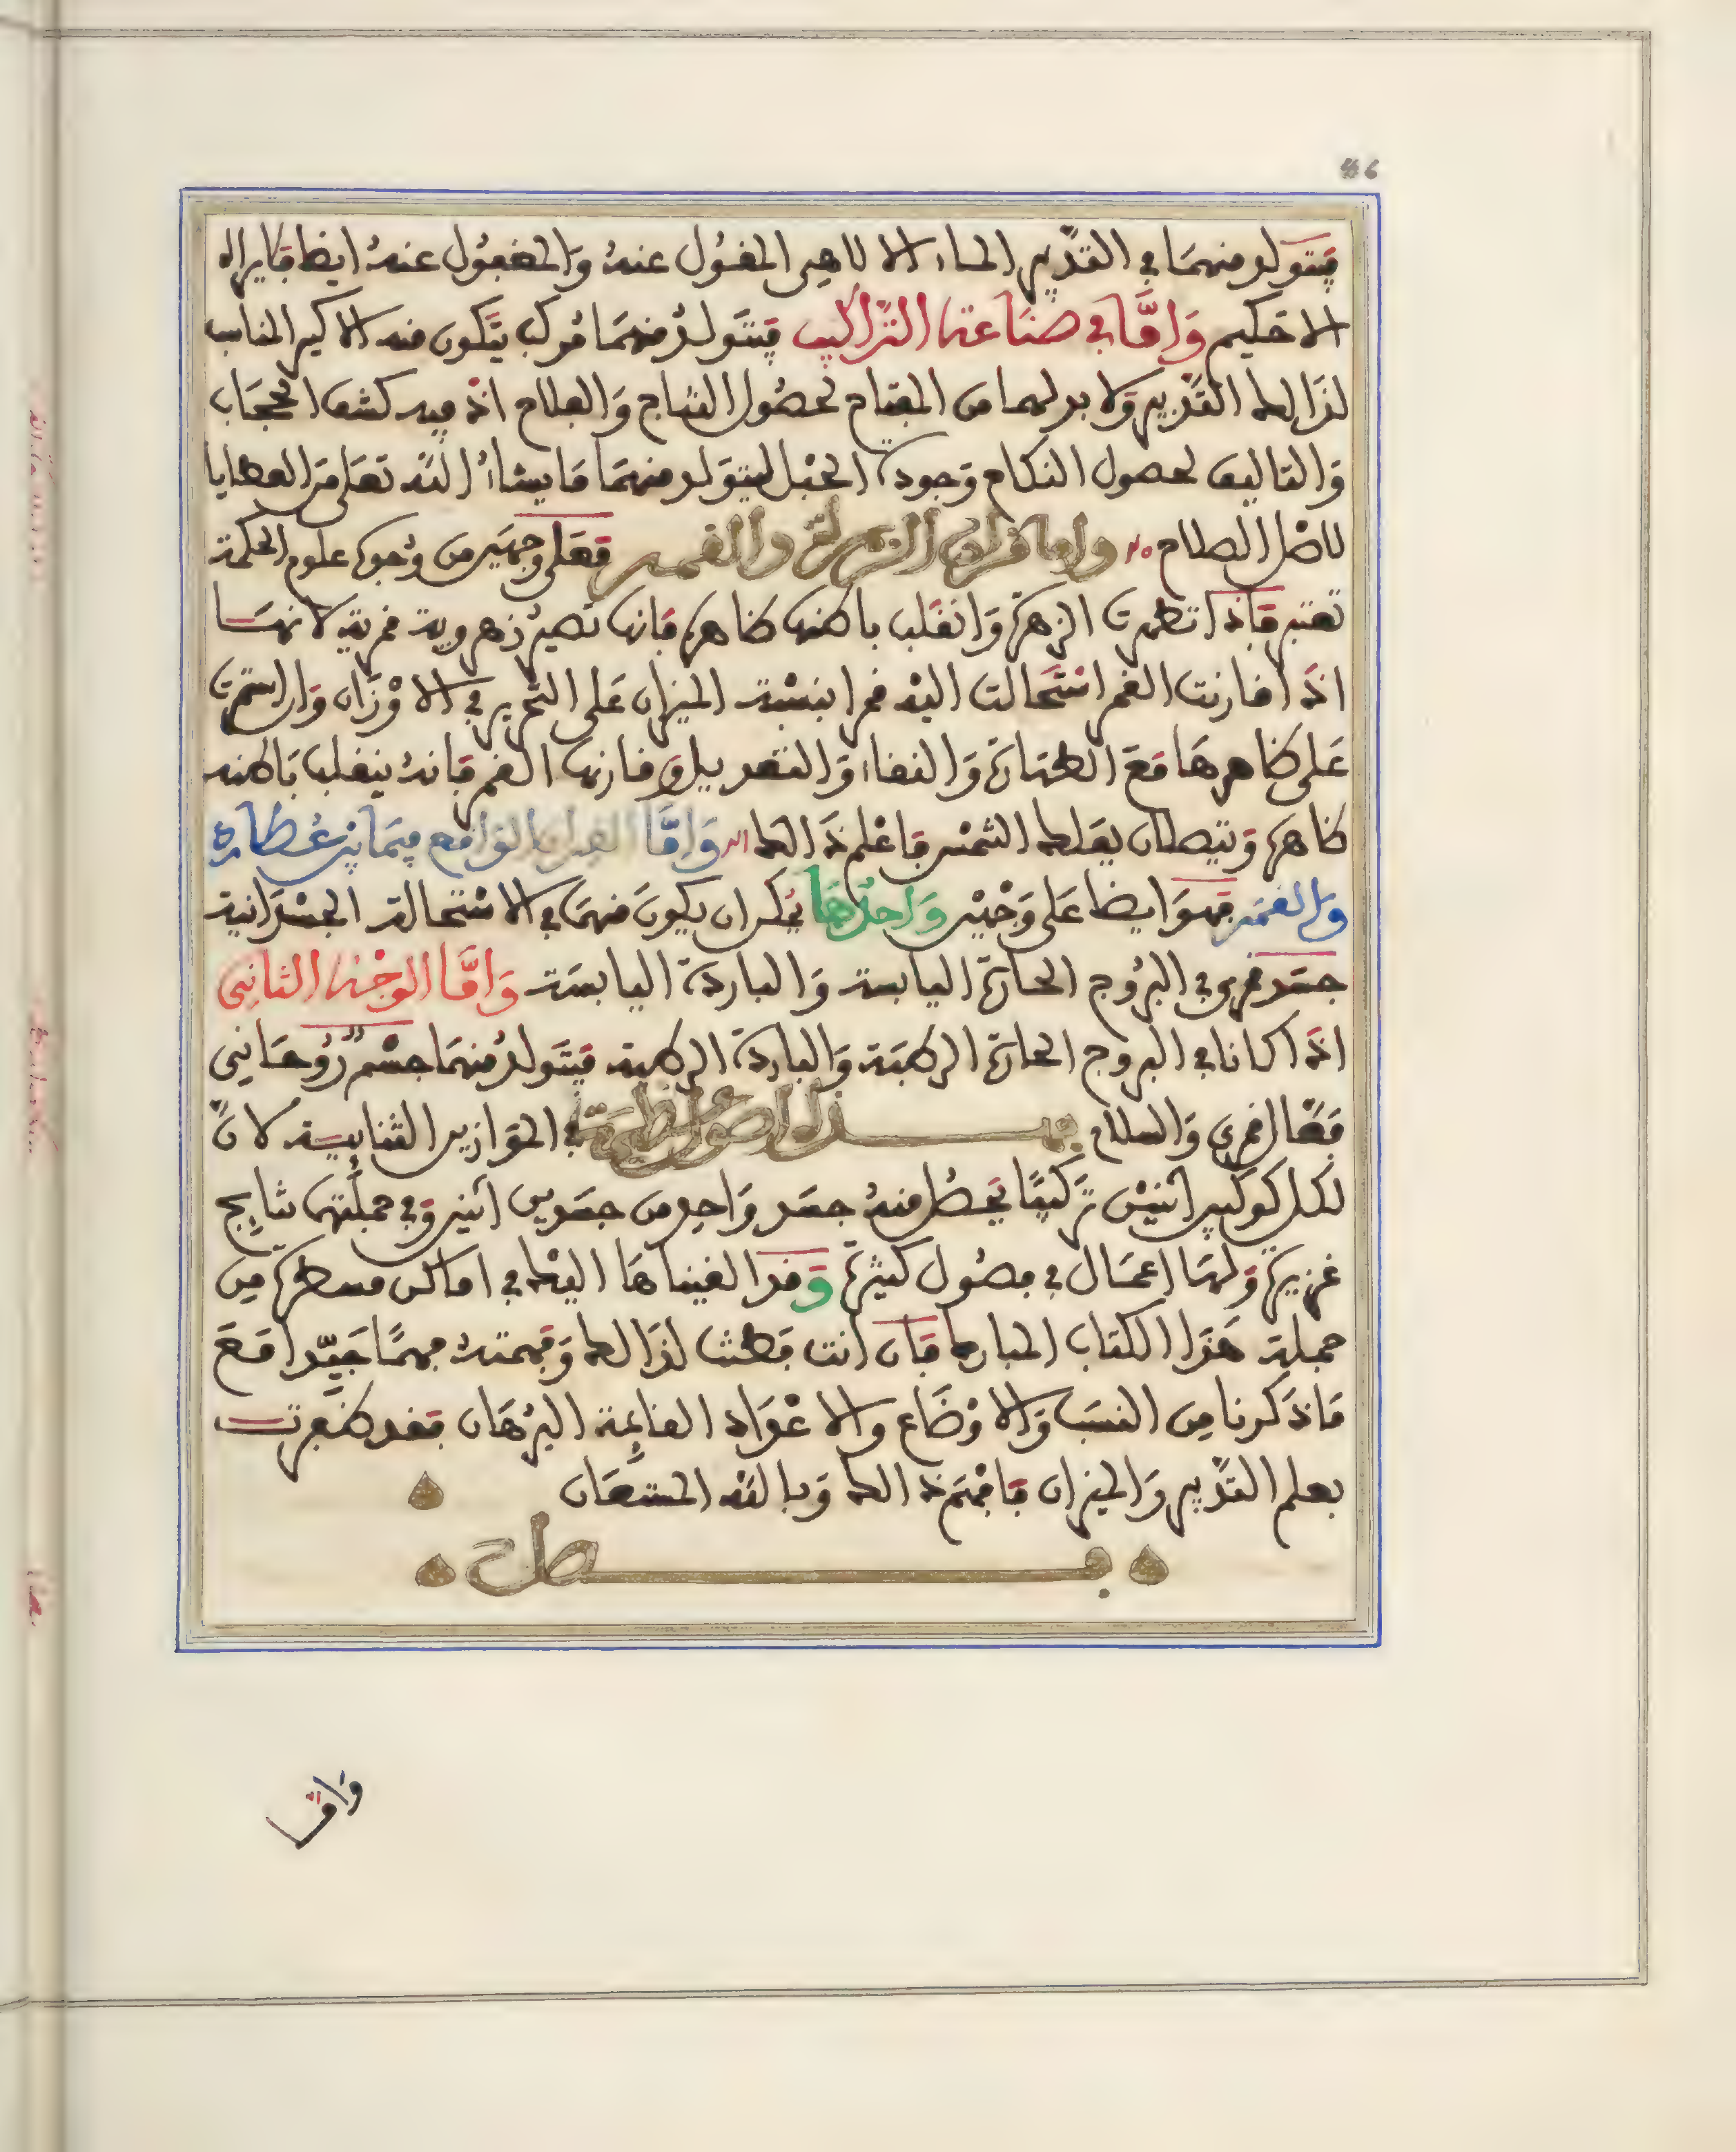 46
فيتولد منهما في التدبير الماء الالاهي المغسول عنه والمغفول عنه ايضا فلا يراه
الا حكيم واما في صناعة التراكيب فيتولد منهما مركب يتكون منه الاكسير المناسب
لذالك التدبير ولا بد لهما من المفتاح لحصول النتاج والفلاح اذ فيه كشف الحجاب
والتاليف لحصول النكاح وجودة الحبل ليتولد منهما ما يشاء الله تعلى من العطايا
لاهل الصلاح واما قران الزهرة والقمر فعلى وجهين من وجوه علوم الحكمة
تعتبر فاذا تطهرت الزهرة وانقلب باطنها ظاهره فانها تصير زهروية قمرية لانها
اذا قارنت القمر استحالت اليه قمرا بنسبة الميزان على التحرير في الاوزان وان استمرت
على ظاهرها مع الطهارة والنقاء والتعديل وقارنها القمر فانه ينقلب باطنه
ظاهره وتتصلان بفلك الشمس فاعلم ذالك واما القران الواقع فيما بين عطارد
والقمر فهو ايضا على وجهين واحدها يمكن ان يكون منهما في الاستحالة الجسدانية
جسد قمري في البروج الحارة اليابسة والباردة اليابسة واما الوجه الثاني
اذا كانا في البروج الحارة الرطبة والباردة الرطبة فيتولد منهما جسم روحاني
فضال قمري والسلام فهذه اصول عظيمة في الموازين القنابيسة لان
لكل كوكبين اثنين تركيبا يحصل منه جسد واحد من جسدين اثنين وفي جملتها نتايج
غزيرة ولها اعمال في فصول كثيرة وقد القيناها اليك في اماكن مسطرة من
جملة هذا الكتاب المبارك فان انت فطنت لذالك وفهمته فهما جيدا مع
ما ذكرنا من النسب والاوضاع والاعداد القايمة البرهان فقد ظفرت
بعلم التدبير والميزان فافهم ذالك وبالله المستعان
فصل
واما